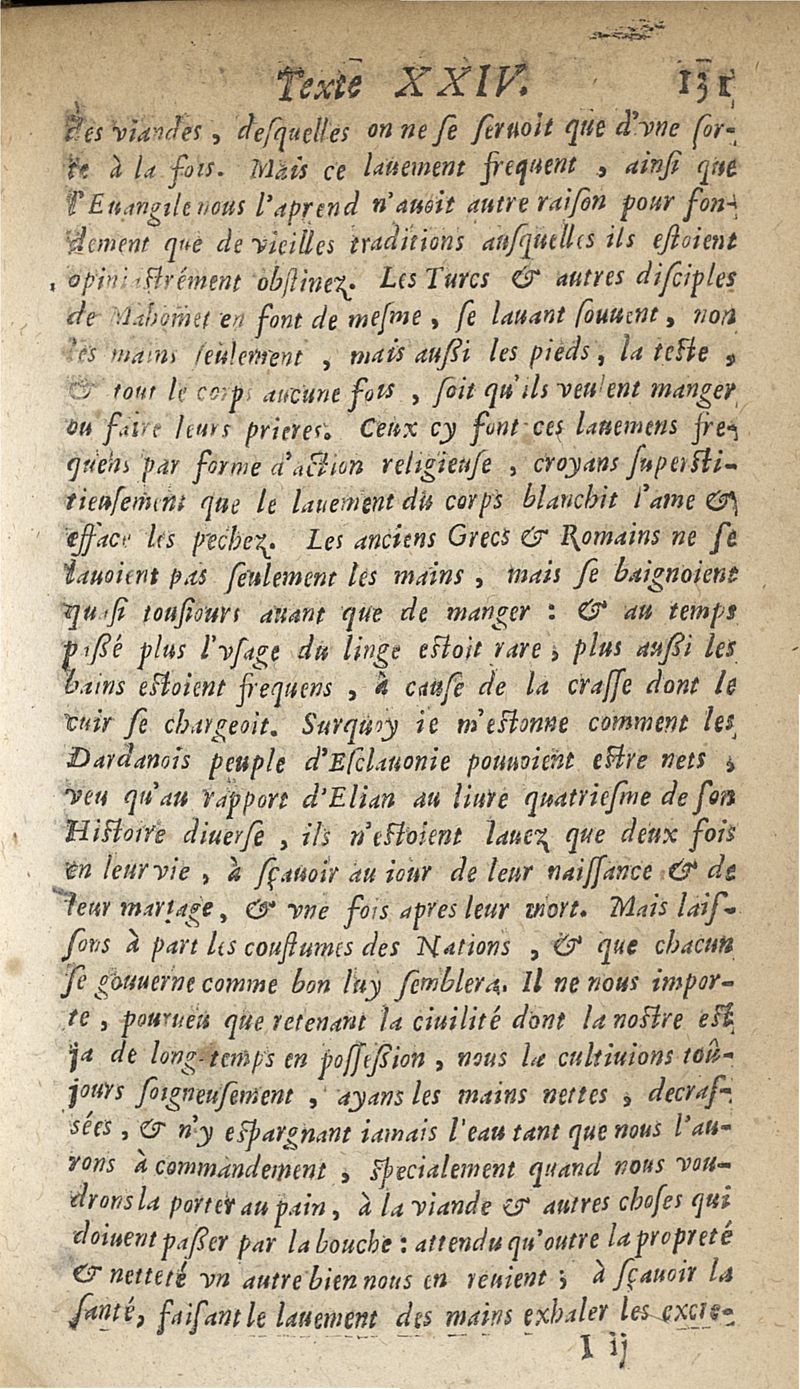 Texte XXIV. 131
des viandes, desquelles on ne se seruoit que d'vne sor-
te à la fois. Mais ce lauement frequent, ainsi que
l'Euangile nous l'aprend n'auoit autre raison pour fon-
dement que de vieilles traditions ausquelles ils estoient
opiniastrément obstinez. Les Turcs & autres disciples
de Mahomet en font de mesme, se lauant souuent, non
les mains seulement, mais aussi les pieds, la teste,
& tout le corps aucune fois, soit qu'ils veulent manger
ou faire leurs prieres. Ceux cy font ces lauemens fre-
quens par forme d'action religieuse, croyans supersti-
tieusement que le lauement du corps blanchit l'ame &
efface les pechez. Les anciens Grecs & Romains ne se
lauoient pas seulement les mains, mais se baignoient
quasi tousiours auant que de manger : & au temps
passé plus l'vsage du linge estoit rare, plus aussi les
bains estoient frequens, à cause de la crasse dont le
cuir se chargeoit. Surquoy ie m'estonne comment les
Dardanois peuple d'Esclauonie pouuoient estre nets,
veu qu'au rapport d'Elian au liure quatriesme de son
Histoire diuerse, ils n'estoient lauez que deux fois
en leur vie, à sçauoir au iour de leur naissance & de
leur mariage, & vne fois apres leur mort. Mais lais-
sons à part les coustumes des Nations, & que chacun
se gouuerne comme bon luy semblera. Il ne nous impor-
te, pourueu que retenant la ciuilité dont la nostre est
ja de long-temps en possession, nous la cultiuions toû-
jours soigneusement, ayans les mains nettes, decras-
sées, & n'y espargnant iamais l'eau tant que nous l'au-
rons à commandement, specialement quand nous vou-
drons la porter au pain, à la viande & autres choses qui
doiuent passer par la bouche : attendu qu'outre la propreté
& netteté vn autre bien nous en reuient ; à sçauoir la
santé, faisant le lauement des mains exhaler les excre-
I ij